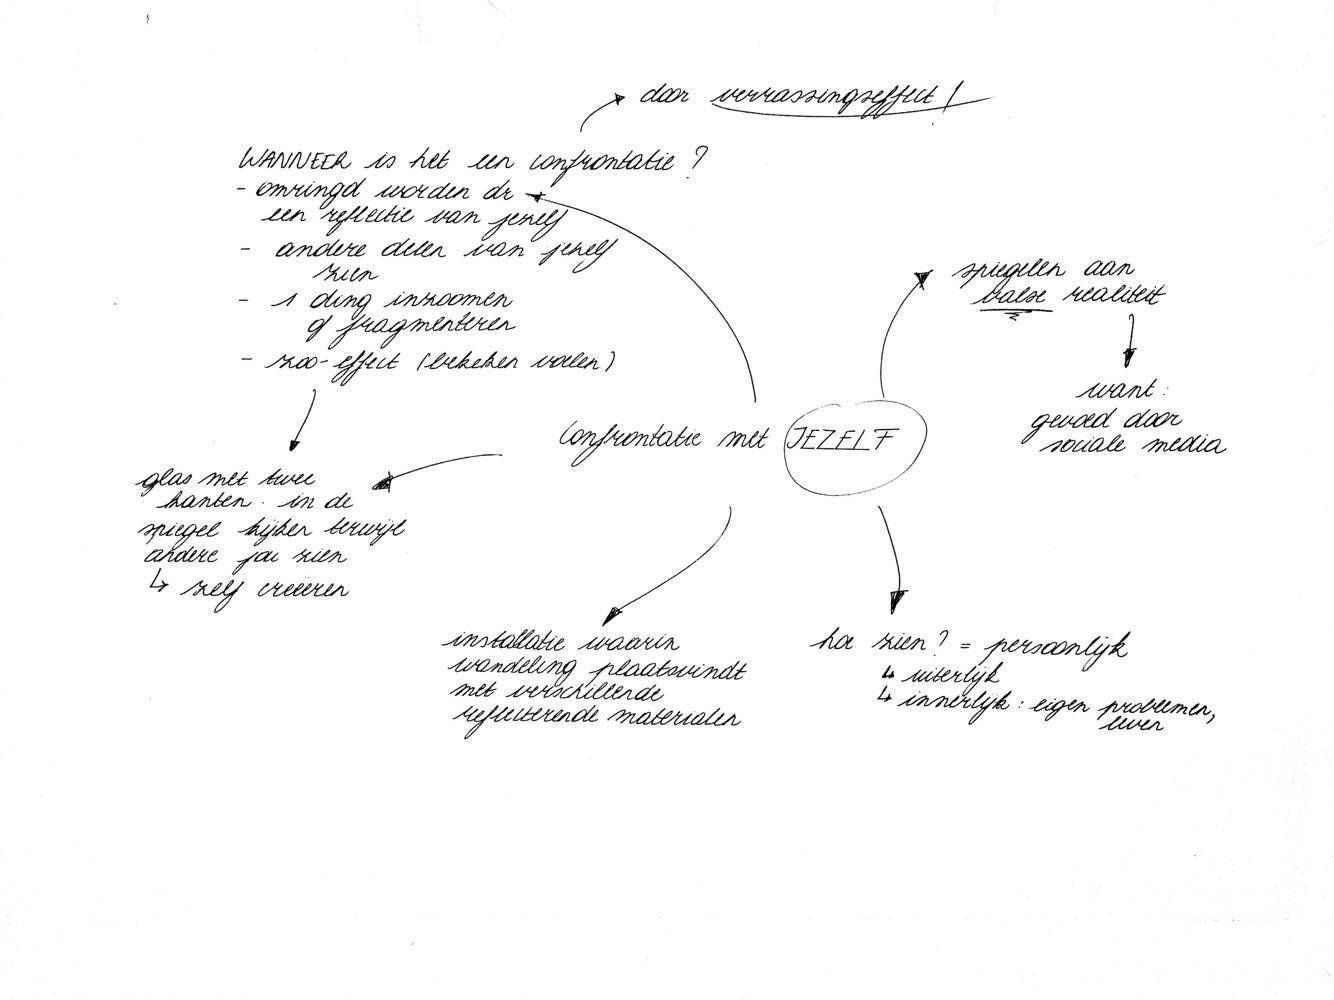 door verrassingseffect!
WANNEER is het een confrontatie?
- omringd worden dr
een reflectie van jezelf
- andere delen van jezelf
zien
- 1 ding inzoomen
of fragmenteren
- zoo-effect (bekeken voelen)
spiegelen aan
valse realiteit
want:
gevoed door
sociale media
Confrontatie met JEZELF
glas met twee
kanten: in de
spiegel kijken terwijl
andere jou zien
↳ zelf creëren
installatie waarin
wandeling plaatsvindt
met verschillende
reflecterende materialen
hoe zien? = persoonlijk
↳ uiterlijk
↳ innerlijk: eigen problemen,
leven